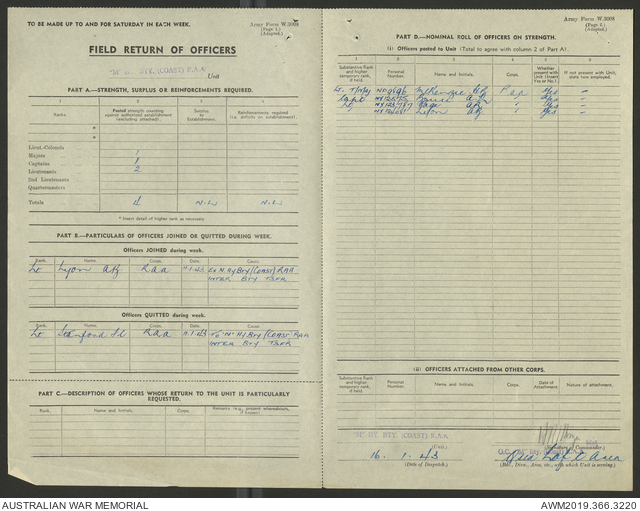 TO BE MADE UP TO AND FOR SATURDAY IN EACH WEEK.
Army Form W.3008
(Page 1.)
(Adapted.)
FIELD RETURN OF OFFICERS
BTY. (COAST) R.A.A.
Unit
PART A.—STRENGTH, SURPLUS OR REINFORCEMENTS REQUIRED.
1 2 3 4
Ranks.
Posted strength counting against authorized establishment (excluding attached).
Surplus to Establishment.
Reinforcements required (i.e. deficits on establishment).
*
*
Lieut.-Colonels
Majors 1
Captains 1
Lieutenants 2
2nd Lieutenants
Quartermasters
Totals 4 NIL NIL
* Insert detail of higher rank as necessary.
PART B.—PARTICULARS OF OFFICERS JOINED OR QUITTED DURING WEEK.
Officers JOINED during week.
Rank. Name. Corps. Date. Cause.
Lt Lyon RAA Ex N Hy Bty (COAST) RAA
INTER BTY TSFR
Officers QUITTED during week.
Rank. Name. Corps. Date. Cause.
Lt RAA To "N" Hy Bty (COAST) RAA
INTER BTY TSFR
PART C.—DESCRIPTION OF OFFICERS WHOSE RETURN TO THE UNIT IS PARTICULARLY REQUESTED.
Rank. Name and Initials. Corps. Remarks (e.g., present whereabouts, if known).
Army Form W.3008
(Page 2.)
(Adapted.)
PART D.—NOMINAL ROLL OF OFFICERS ON STRENGTH.
(i) Officers posted to Unit (Total to agree with column 2 of Part A).
1 2 3 4 5 6
Substantive Rank and higher temporary rank, if held.
Personal Number.
Name and Initials.
Corps.
Whether present with Unit (Insert Yes or No.).
If not present with Unit, state how employed.
McKenzie Yes -
Capt Yes -
Lt Page Yes -
Lyon Yes -
(ii) OFFICERS ATTACHED FROM OTHER CORPS.
Substantive Rank and higher temporary rank, if held.
Personal Number.
Name and Initials.
Corps.
Date of Attachment.
Nature of attachment.
HY. BTY. (COAST) R.A.A.
(Unit.)
16.1.43
(Date of Despatch.)
(Signature of Commander.)
O.C.
(Bde., Divn., Area, etc., with which Unit is serving.)
AUSTRALIAN WAR MEMORIAL
AWM2019.366.3220